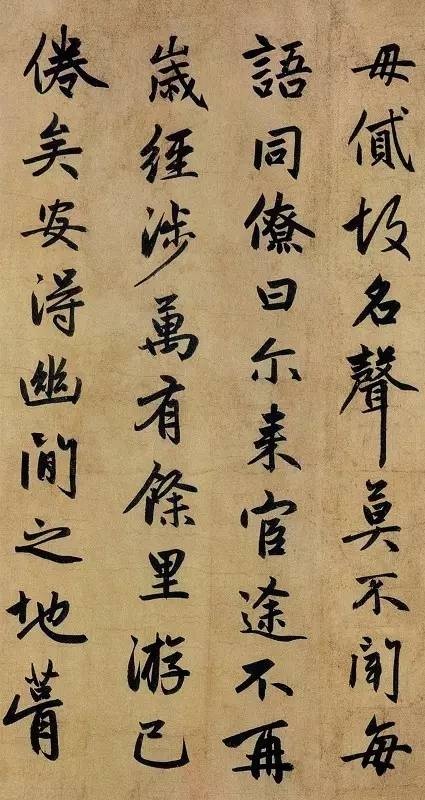 毋故名聲莫不聞每
語同僚曰尔来官途不再
歲經涉萬有餘里游已
倦矣安得幽閒之地